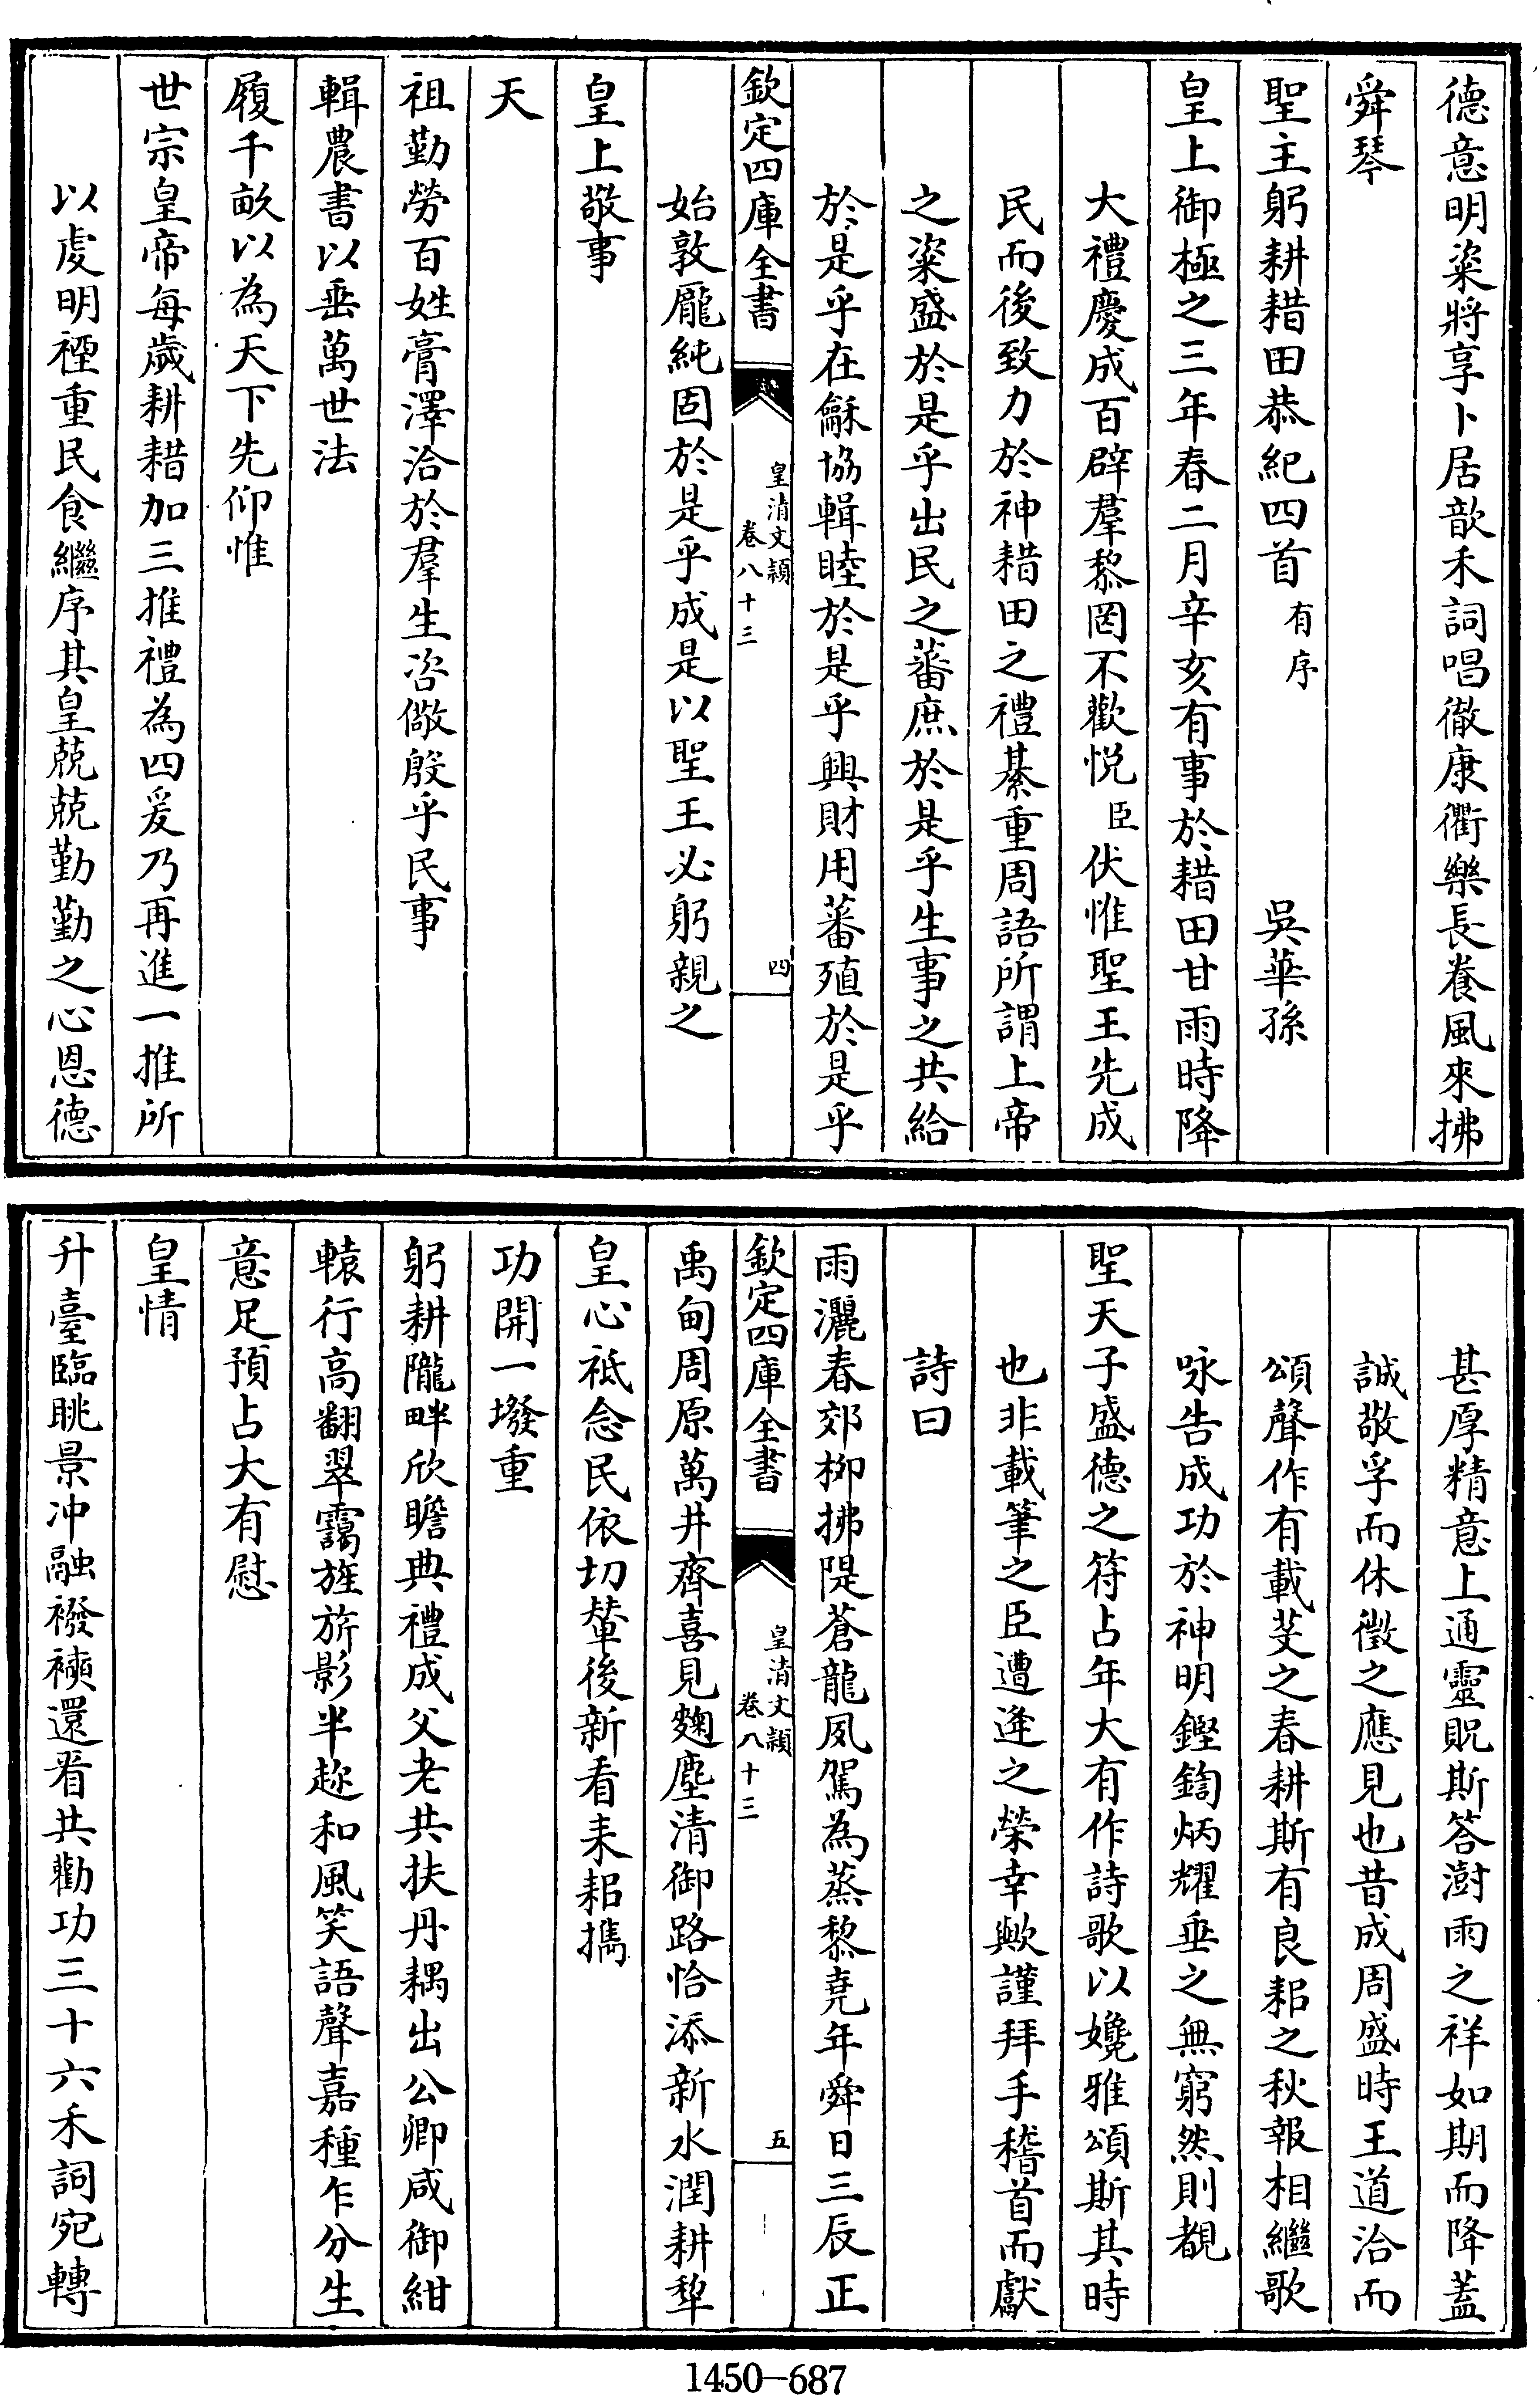 德意明粢將享卜居歆禾詞唱徹康衢樂長養風來拂
舜琴
聖主躬耕耤田恭紀四首有序 吳華孫
皇上御極之三年春二月辛亥有事於耤田甘雨時降
大禮慶成百辟羣黎罔不歡悅臣伏惟聖王先成
民而後致力於神耤田之禮綦重周語所謂上帝
之粢盛於是乎出民之蕃庶於是乎生事之共給
於是乎在龢協輯睦於是乎興財用蕃殖於是乎
欽定四庫全書 皇清文穎 卷八十三 四
始敦龐純固於是乎成是以聖王必躬親之
皇上敬事
天
祖勤勞百姓膏澤洽於羣生咨儆殷乎民事
輯農書以垂萬世法
履千畝以為天下先仰惟
世宗皇帝每歲耕耤加三推禮為四爰乃再進一推所
以虔明禋重民食繼序其皇兢兢勤勤之心恩德
甚厚精意上通靈貺斯答澍雨之祥如期而降蓋
誠敬孚而休徵之應見也昔成周盛時王道洽而
頌聲作有載芟之春耕斯有良耜之秋報相繼歌
咏告成功於神明鏗鍧炳耀垂之無窮然則覩
聖天子盛德之符占年大有作詩歌以媲雅頌斯其時
也非載筆之臣遭逢之榮幸歟謹拜手稽首而獻
詩曰
雨灑春郊柳拂隄蒼龍夙駕為蒸黎堯年舜日三辰正
欽定四庫全書 皇清文穎 卷八十三 五
禹甸周原萬井齊喜見麴塵清御路恰添新水潤耕犂
皇心祗念民依切輦後新看耒耜擕
功開一墢重
躬耕隴畔欣瞻典禮成父老共扶丹耦出公卿咸御紺
轅行高翻翠靄旌旂影半趂和風笑語聲嘉種乍分生
意足預占大有慰
皇情
升臺臨眺景冲融襏襫還看共勸功三十六禾詞宛轉
1450-687